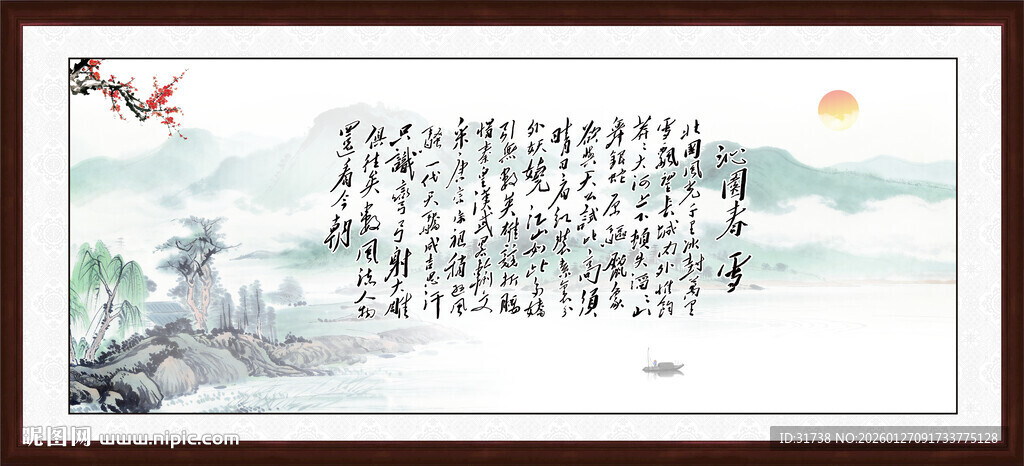 沁園春 雪
北国風光千里冰封萬里
雪飄望長城内外惟餘
莽々大河上下頓失滔々山
舞銀蛇原驅臘象
欲與天公試比高須
晴日看紅裝素裹分
外妖嬈江山如此多嬌
引無數英雄競折腰
惜秦皇漢武略輸文
采唐宗宋祖稍遜風
騷一代天驕成吉思汗
只識彎弓射大雕
俱往矣數風流人物
還看今朝
昵图网 www.nipic.com
ID:31738 NO:20260127091733775128